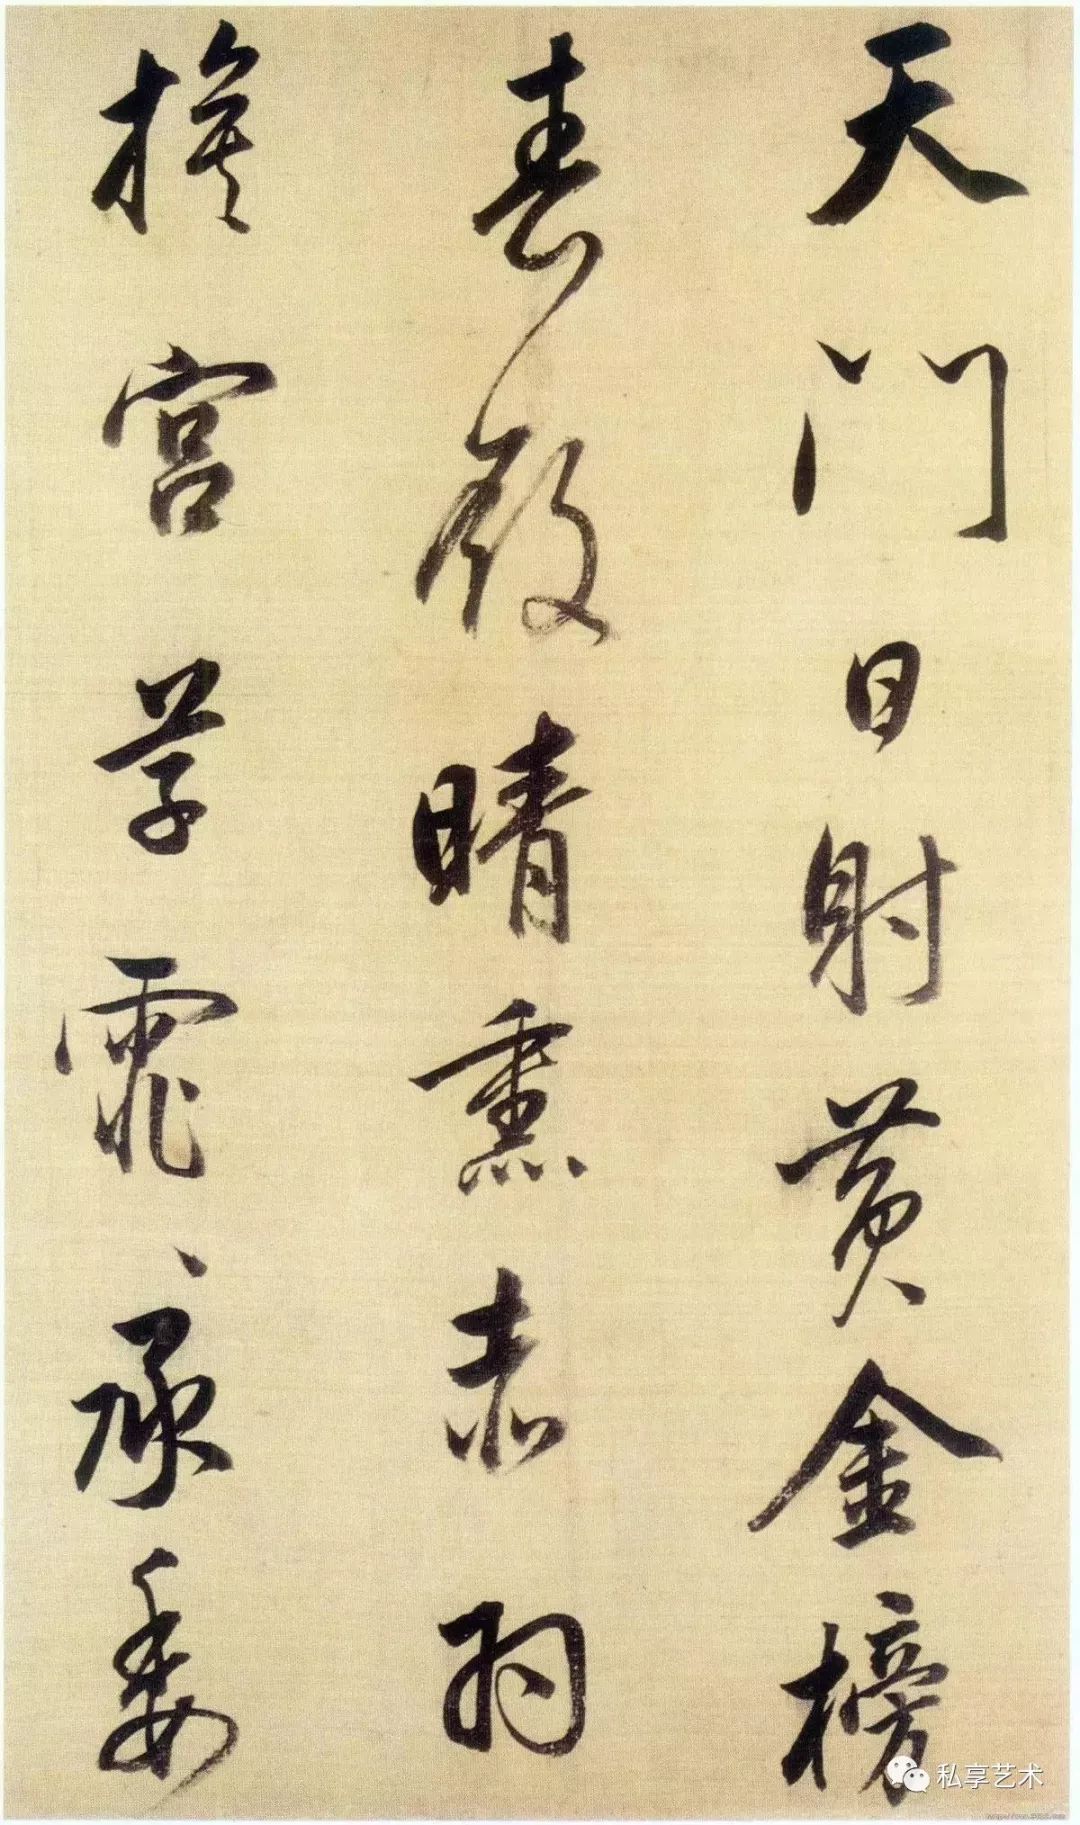 天門日射黄金榜
春殿晴熏赤羽
旗宮草霏々承委
私享艺术